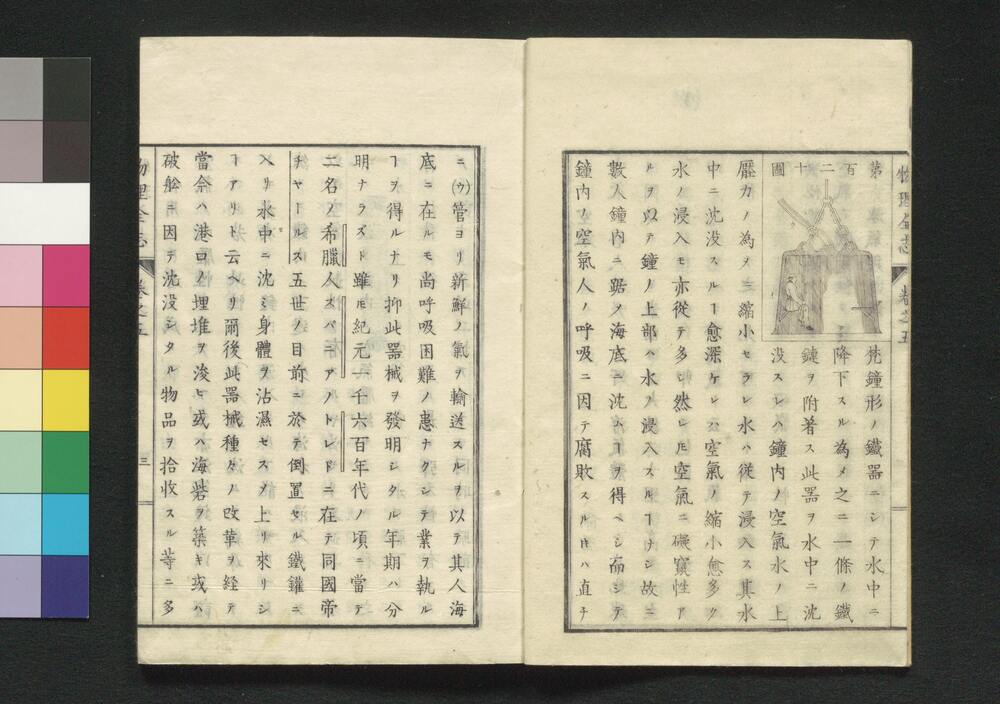 物理全志
卷之五
第百二十圖
梵鐘形ノ鐵器ニシテ水中ニ
降下スル為メ之ニ一條ノ鐵
鏈ヲ附着ス此器ヲ水中ニ沈
没スレハ鐘内ノ空氣水ノ上
壓力ノ為メニ縮小セラレ水ハ従テ浸入ス其水
中ニ沈没スルヿ愈深ケレハ空氣ノ縮小愈多ク
水ノ浸入モ亦從テ多シ然レ𪜈空氣ニ礙竄性ア
ルヲ以テ鐘ノ上部ハ水ノ浸入スルヿナシ故ニ
數人鐘内ニ踞メ海底ニ沈ムヿヲ得ベシ而シテ
鐘内ノ空氣人ノ呼吸ニ因テ腐敗スル𪜈ハ直チ
ニ(ウ)管ヨリ新鮮ノ氣ヲ輸送スルヲ以テ其人海
底ニ在ルモ尚呼吸困難ノ患ナクシテ業ヲ執ル
ヿヲ得ルナリ抑此器械ヲ發明シタル年期ハ分
明ナラズト雖𪜈紀元一千六百年代ノ頃ニ當テ
二名ノ希臘人スパニアノトレドニ在テ同國帝
チヤールス五世ノ目前ニ於テ倒置セル鐵鑵ニ
入リ水中ニ沈ミ身體ヲ沾濕セスメ上リ來リシ
ヿアリト云ヘリ爾後此器械種々ノ改革ヲ経テ
當今ハ港口ノ埋堆ヲ浚ヒ或ハ海砦ヲ築キ或ハ
破舩ニ因テ沈没シタル物品ヲ拾收スル等ニ多
物理全志
卷之五
三